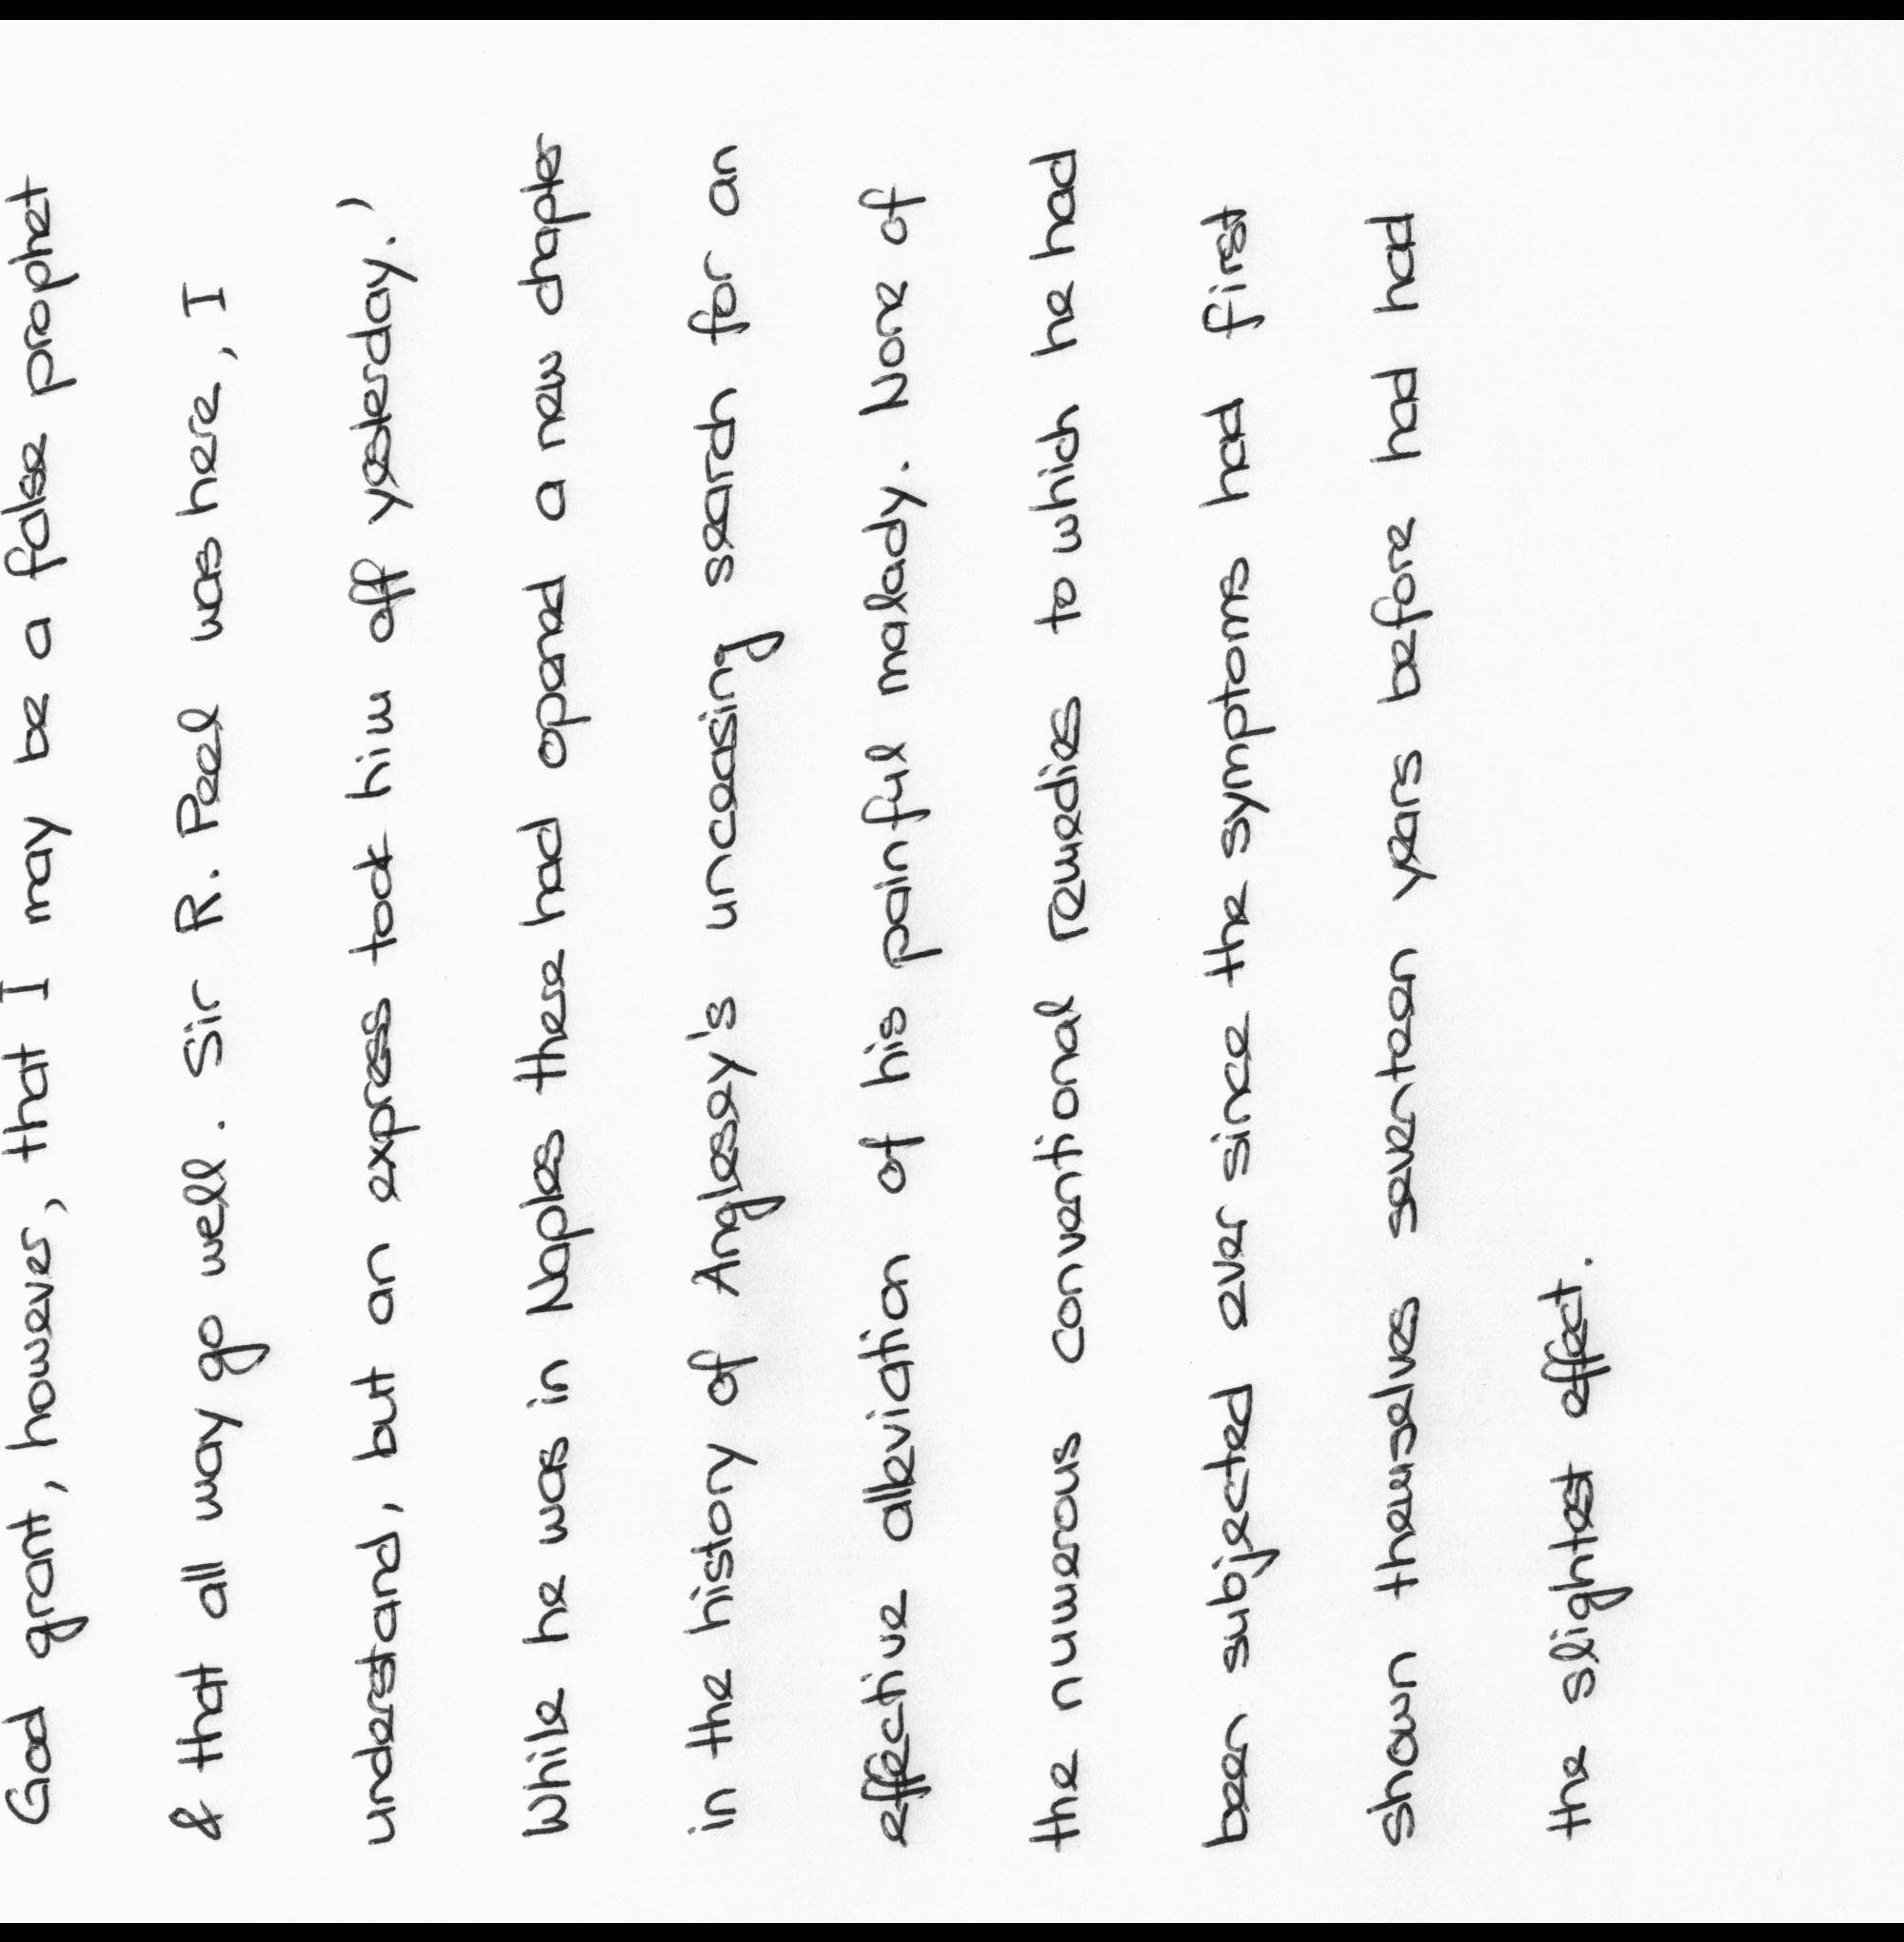 God grant, however, that I may be a false prophet
& that all may go well. Sir R. Peel was here, I
understand, but an express took him off yesterday.'
While he was in Naples these had opend a new chapter
in the history of Anglesey's unceasing search for an
effective alleviation of his painful malady. None of
the numerous conventional remedies to which he had
been subjected ever since the symptoms had first
shown themselves seventeen years before had had
the slightest effect.